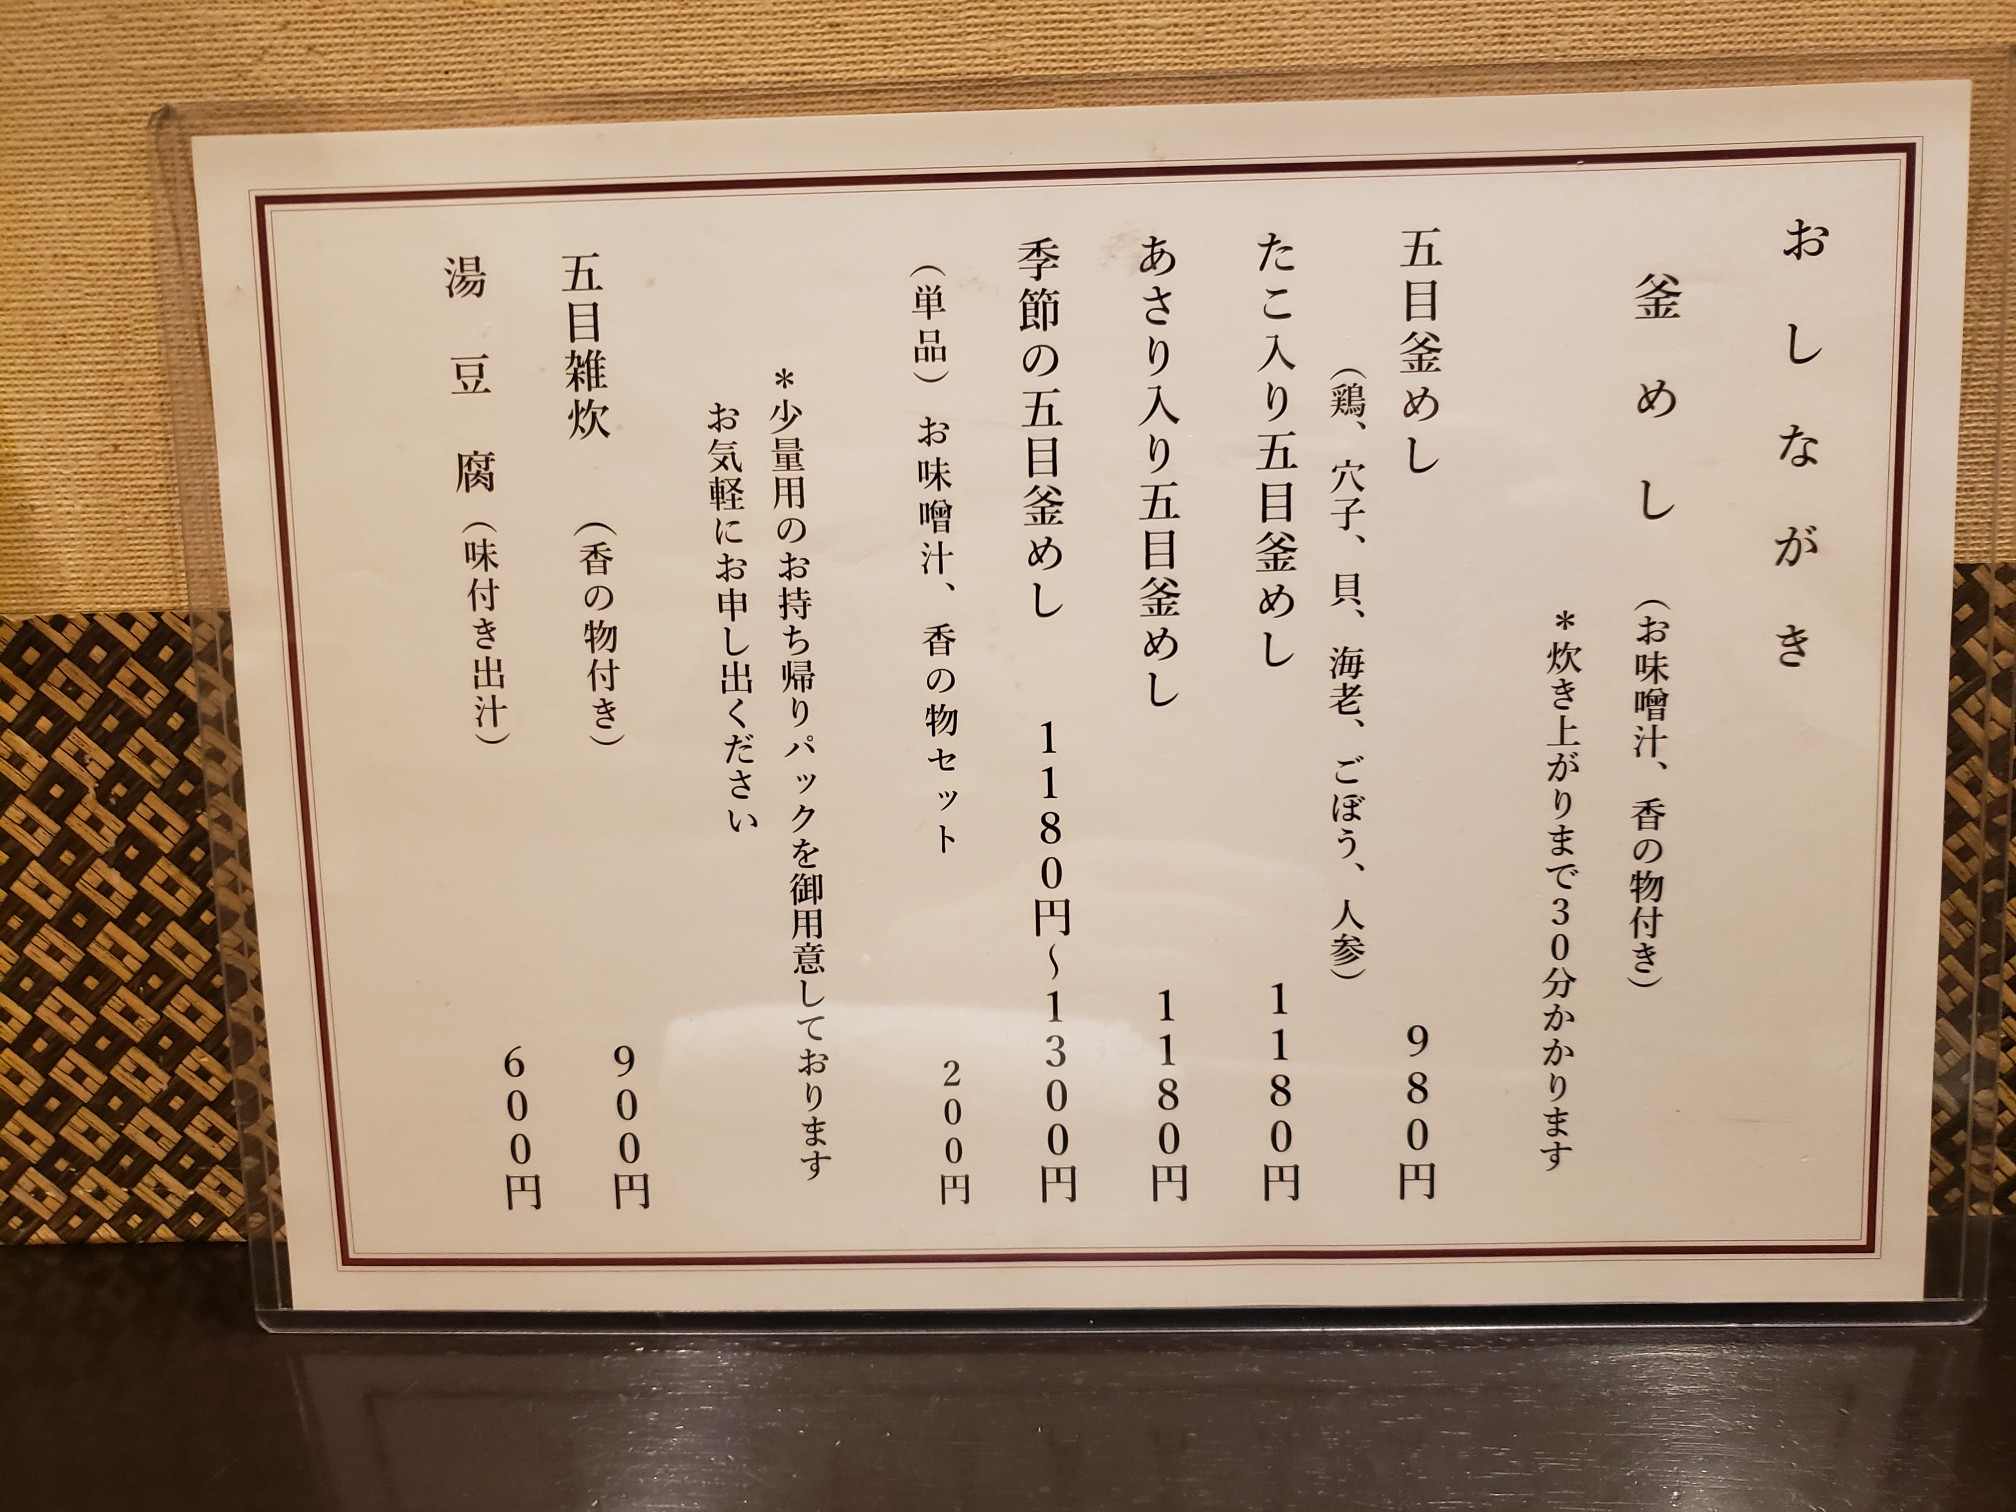 おしながき
釜めし（お味噌汁、香の物付き）
＊炊き上がりまで30分かかります
五目釜めし 980円
（鶏、穴子、貝、海老、ごぼう、人参）
たこ入り五目釜めし 1180円
あさり入り五目釜めし 1180円
季節の五目釜めし 1180円～1300円
（単品）お味噌汁、香の物セット 200円
＊少量用のお持ち帰りパックを御用意しております
お気軽にお申し出ください
五目雑炊（香の物付き） 900円
湯豆腐（味付き出汁） 600円